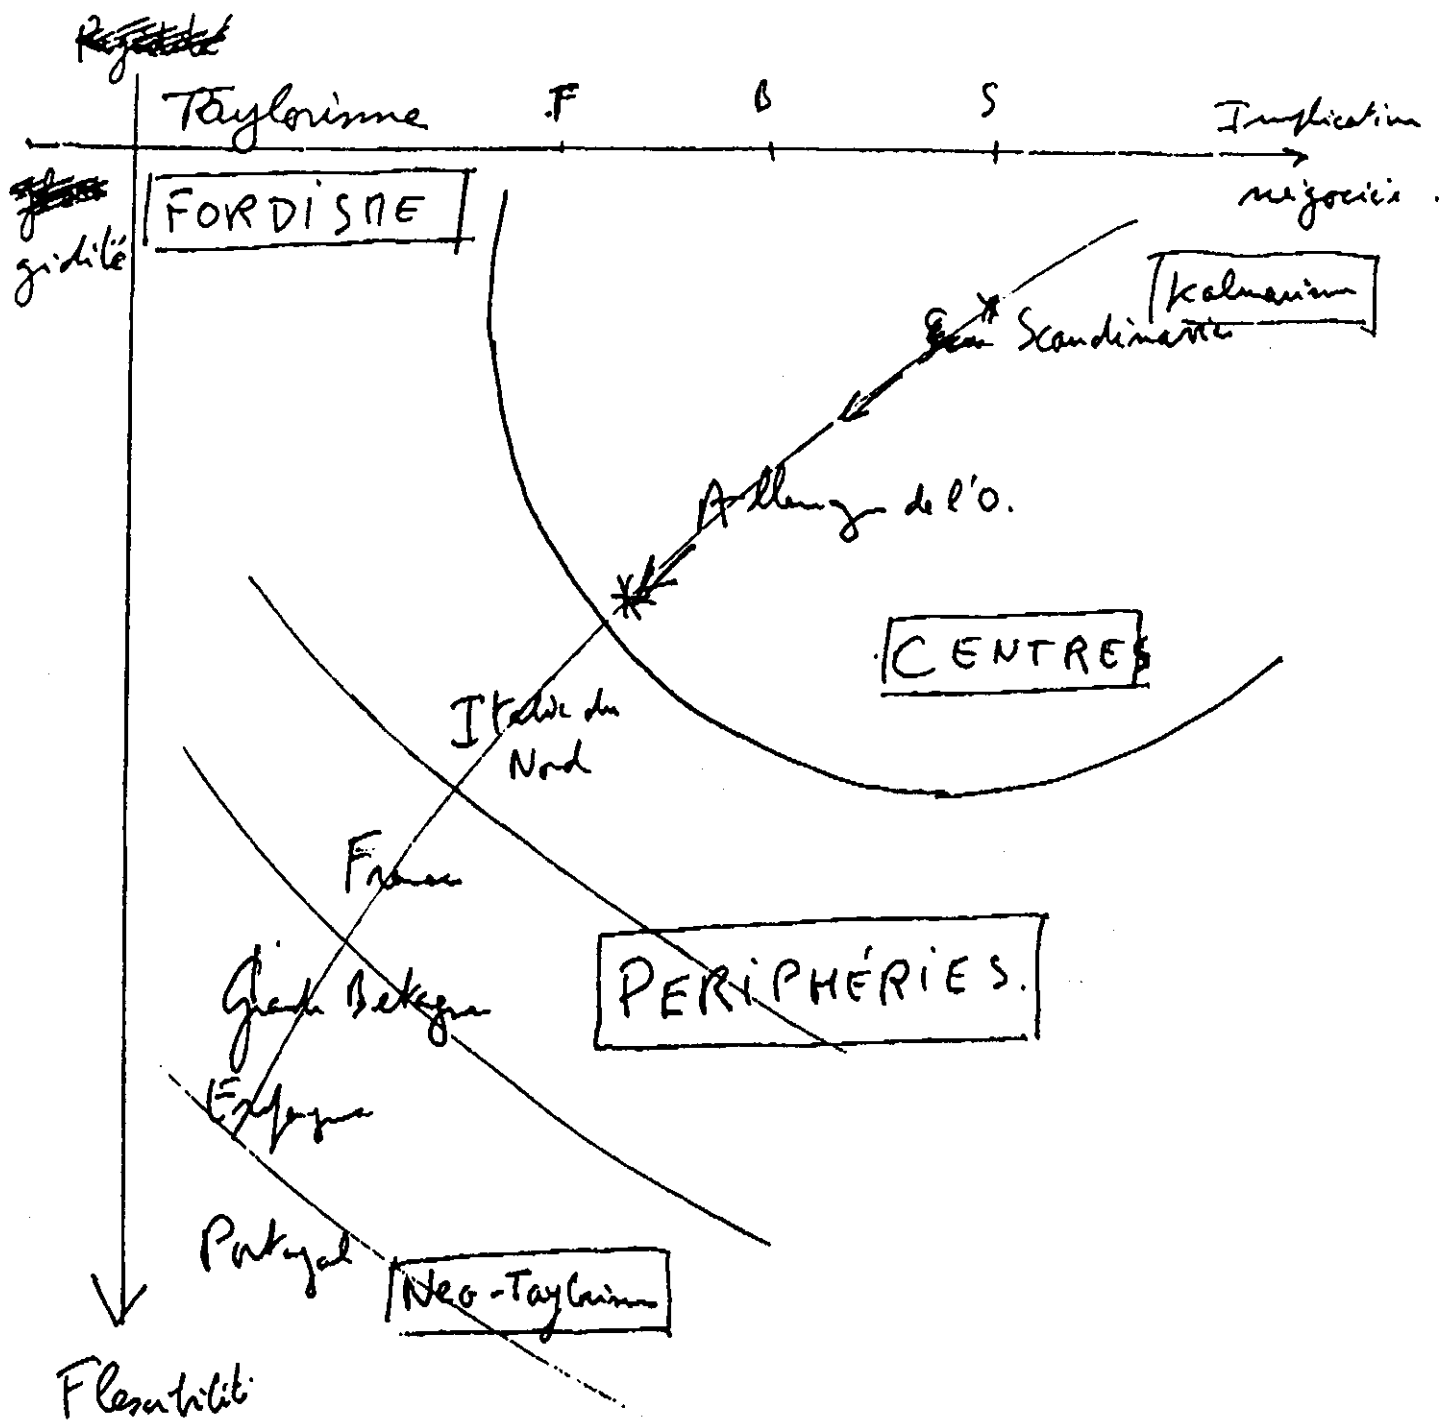 Taylorisme
F
B
S
Implication
négociée.
gidité
FORDISME
Kalmarisme
Scandinavie
Allemagne de l'O.
CENTRES
Italie du
Nord
France
Grande Bretagne
PERIPHÉRIES.
Espagne
Portugal
Neo-Taylorisme
Flexibilité